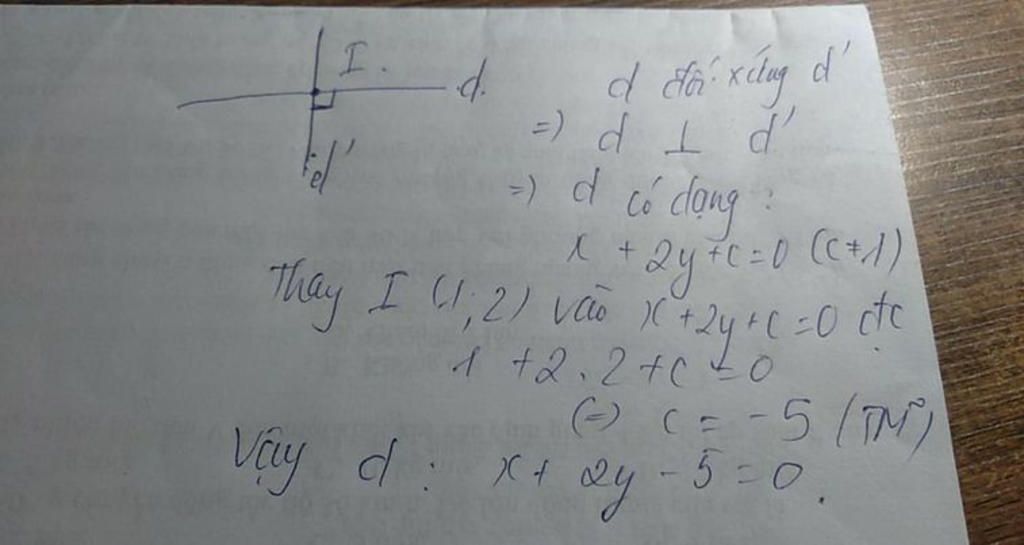 I.
d.
d'
d đối xứng d'
=) d ⊥ d'
=) d có dạng :
x + 2y + c = 0 (c ≠ 1)
Thay I (1; 2) vào x + 2y + c = 0 đc
1 + 2 . 2 + c = 0
(=) c = -5 (TM)
Vậy d : x + 2y - 5 = 0.